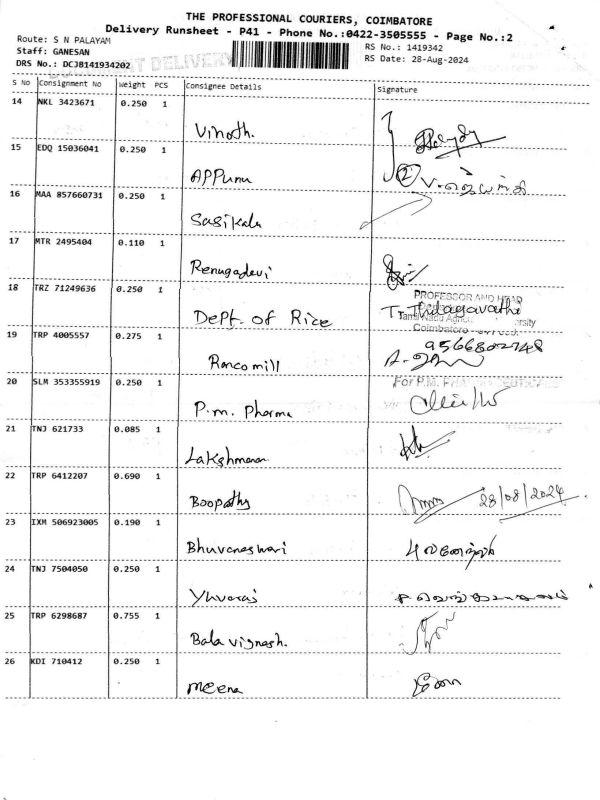 THE PROFESSIONAL COURIERS, COIMBATORE
Delivery Runsheet - P41 - Phone No.:0422-3505555 - Page No.:2
Route: S N PALAYAM
Staff: GANESAN
DRS No.: DCJB141934202
RS No.: 1419342
RS Date: 28-Aug-2024
DELIVERY
S No Consignment No Weight PCS Consignee Details Signature
14 NKL 3423671 0.250 1
Vinoth.
15 EDQ 15036041 0.250 1
APPunu
16 MAA 857660731 0.250 1
Sasikala
17 MTR 2495404 0.110 1
Renugadevi
18 TRZ 71249636 0.250 1
PROFESSOR AND HEAD
Dept. of Rice T. Thilagavathi
Coimbatore
19 TRP 4005557 0.275 1
9566802748
Roncomill
20 SLM 353355919 0.250 1
For P.M.
P.m. Pharma
21 TNJ 621733 0.085 1
Lakshmanan
22 TRP 6412207 0.690 1
Boopathy 28/08/2024
23 IXM 506923005 0.190 1
Bhuvaneshwari
24 TNJ 7504050 0.250 1
Yuvaraj
25 TRP 6298687 0.755 1
Bala vignesh.
26 KDI 710412 0.250 1
meena